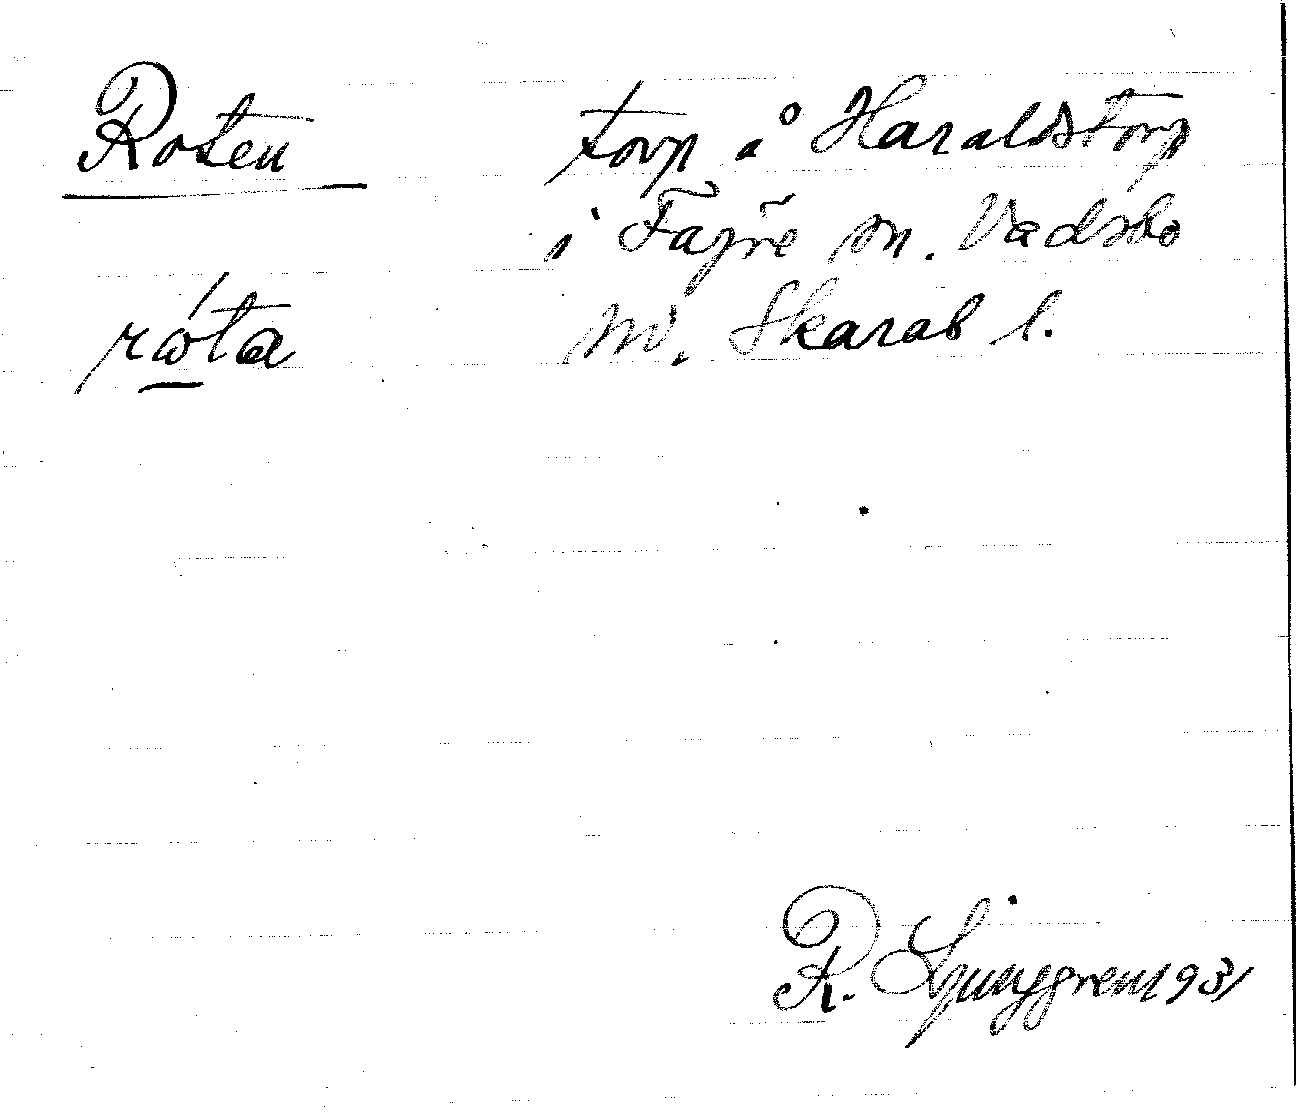 Roten
torp å Haraldstorp
i Fägre sn. Vadsbo
róta
hd. Skarab l.
R. Ljunggren 1931